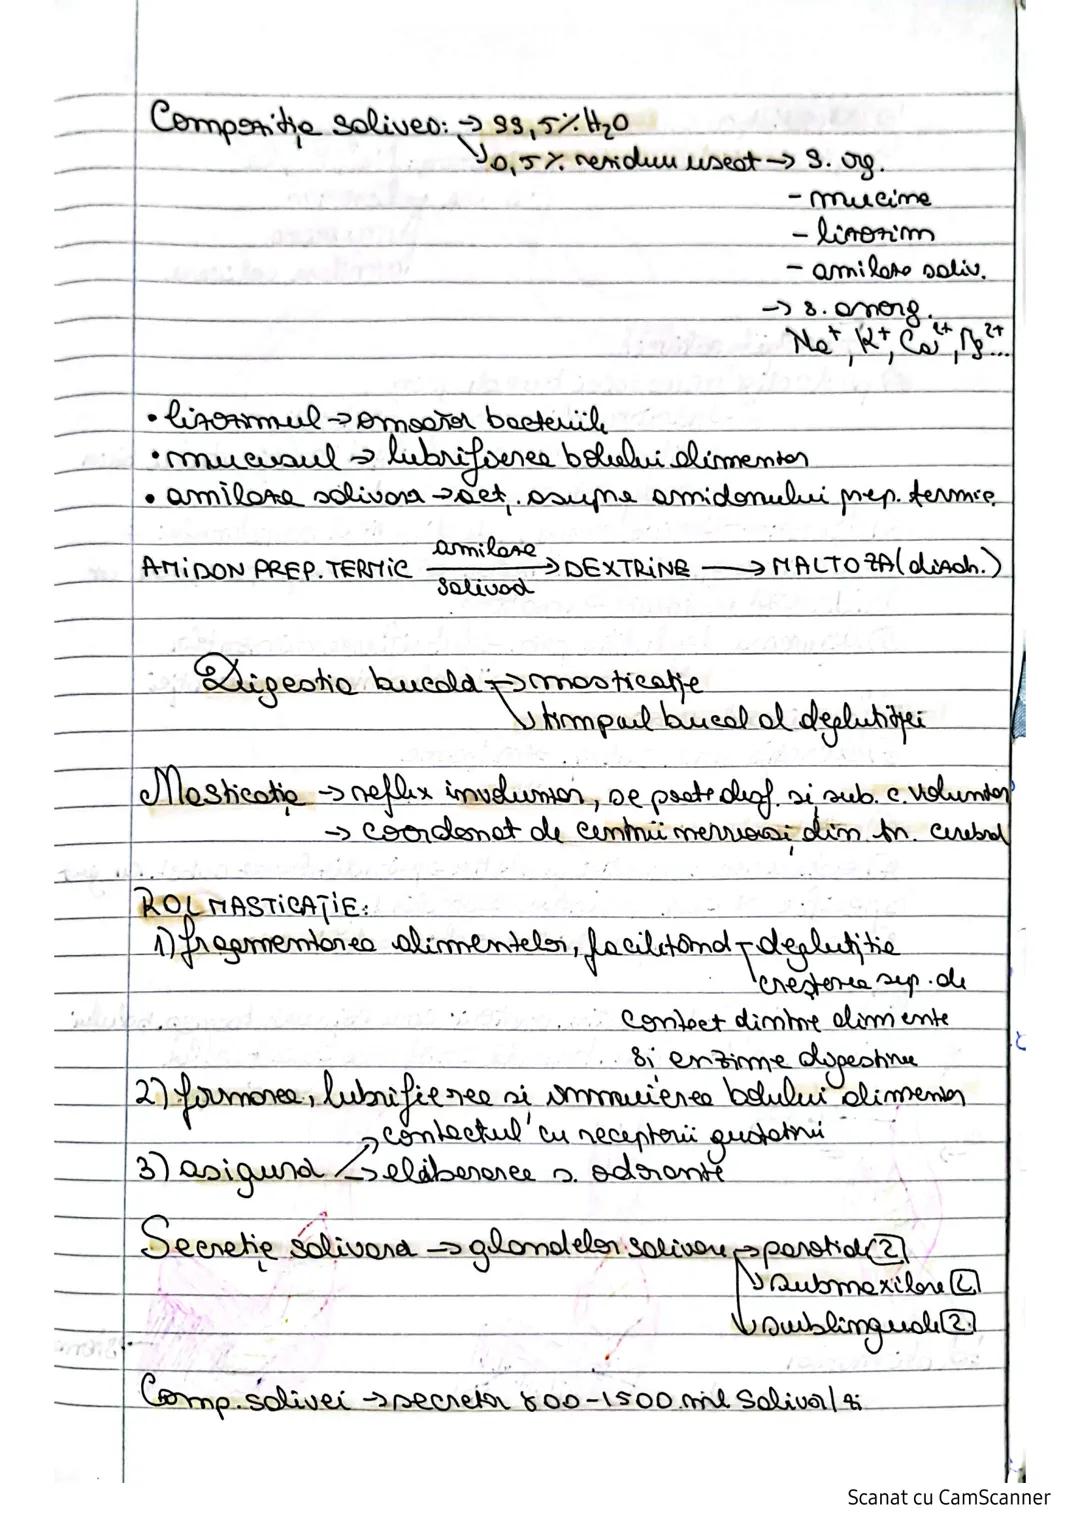 Compoziția salivei: → 99,5% H₂O
↘ 0,5% reziduu uscat → s. org.
- mucine
- lizozim
- amilaza saliv.
→ s. anorg.
Na⁺, K⁺, Ca²⁺, Mg²⁺...
• lizozimul → omoară bacteriile
• mucusul → lubrifierea bolului alimentar
• amilaza salivară → acț. asupra amidonului prep. termic
AMIDON PREP. TERMIC amilaza salivară → DEXTRINE → MALTOZA (dizah.)
Digestia bucală → masticație
↘ timpul bucal al deglutiției
Masticația → reflex involuntar, se poate desf. și sub. c. voluntar
→ coordonat de centrii nervoși din tr. cerebral
ROL MASTICAȚIE:
1) fragmentarea alimentelor, facilitând deglutiție
creșterea sup. de
contact dintre alimente
și enzime digestive
2) formarea, lubrifierea și înmuierea bolului alimentar
→ contactul cu receptorii gustativi
3) asigură → eliberarea s. odorante
Secreție salivară → glandelor salivare → parotide 2
↘ submaxilare 2
↘ sublinguale 2
Comp. salivei → secretă 800-1500 ml salivă/zi
Scanat cu CamScanner